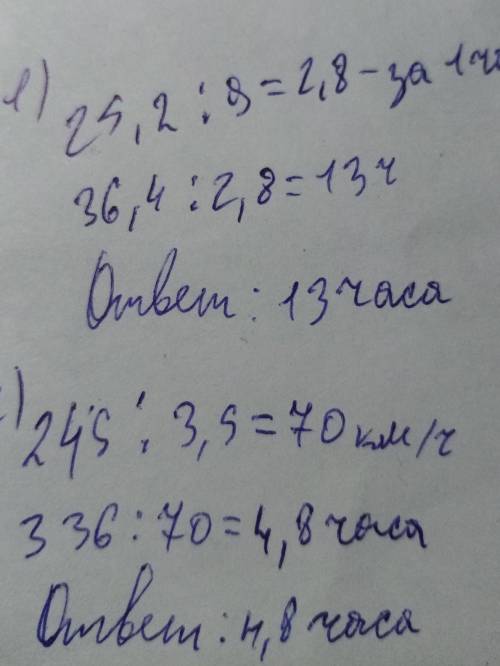 1) 25,2 : 9 = 2,8 - за 1 ч
36,4 : 2,8 = 13 ч
Ответ: 13 часа
) 245 : 3,5 = 70 км/ч
336 : 70 = 4,8 часа
Ответ: 4,8 часа